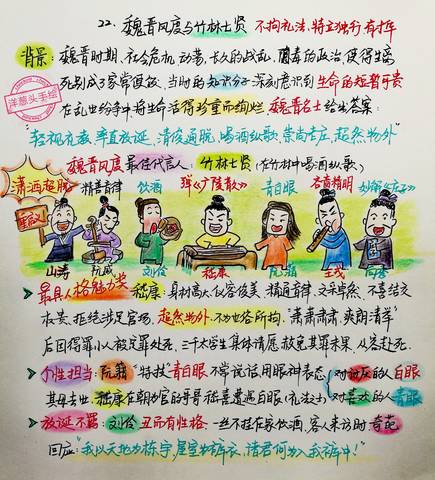 22、魏晋风度与竹林七贤 不拘礼法,特立独行,有才华
背景:魏晋时期,社会危机,动荡,长久的战乱,黑毒的政治,使得生离
死别成了家常便饭,当时的知识分子深刻意识到生命的短暂可贵
洋葱头手绘
在乱世纷争中将生命活得珍重而绚烂.魏晋名士给出答案:
"轻视礼教,率直放诞,清俊通脱,喝酒纵歌,崇尚老庄,超然物外"
魏晋风度最佳代言人:竹林七贤(在竹林中喝酒纵歌)
潇洒超脱 精善音律 饮酒 弹《广陵散》 青白眼 吝啬精明 妙解《庄子》
山涛 阮咸 刘伶 嵇康 阮籍 王戎 向秀
最具人格魅力奖 嵇康:身材高大,仪容俊美,精通音律,文采卓然,不喜结交
权贵,拒绝涉足官场,超然物外,不为世俗所拘."萧萧肃肃,爽朗清举"
后因得罪小人被定罪处死,三千太学生集体请愿赦免其罪未果,从容赴死.
个性担当:阮籍"特技"青白眼 不常说话用眼神表态(对讨厌的人白眼
其母去世,嵇康在朝为官的哥哥嵇喜遭遇白眼(礼法之士)对喜欢的人青眼
放诞不羁:刘伶 丑而有性格.一丝不挂在家饮酒,客人来访时奇葩
回应:"我以天地为栋宇,屋室为裈衣,诸君何为入我裤中!"